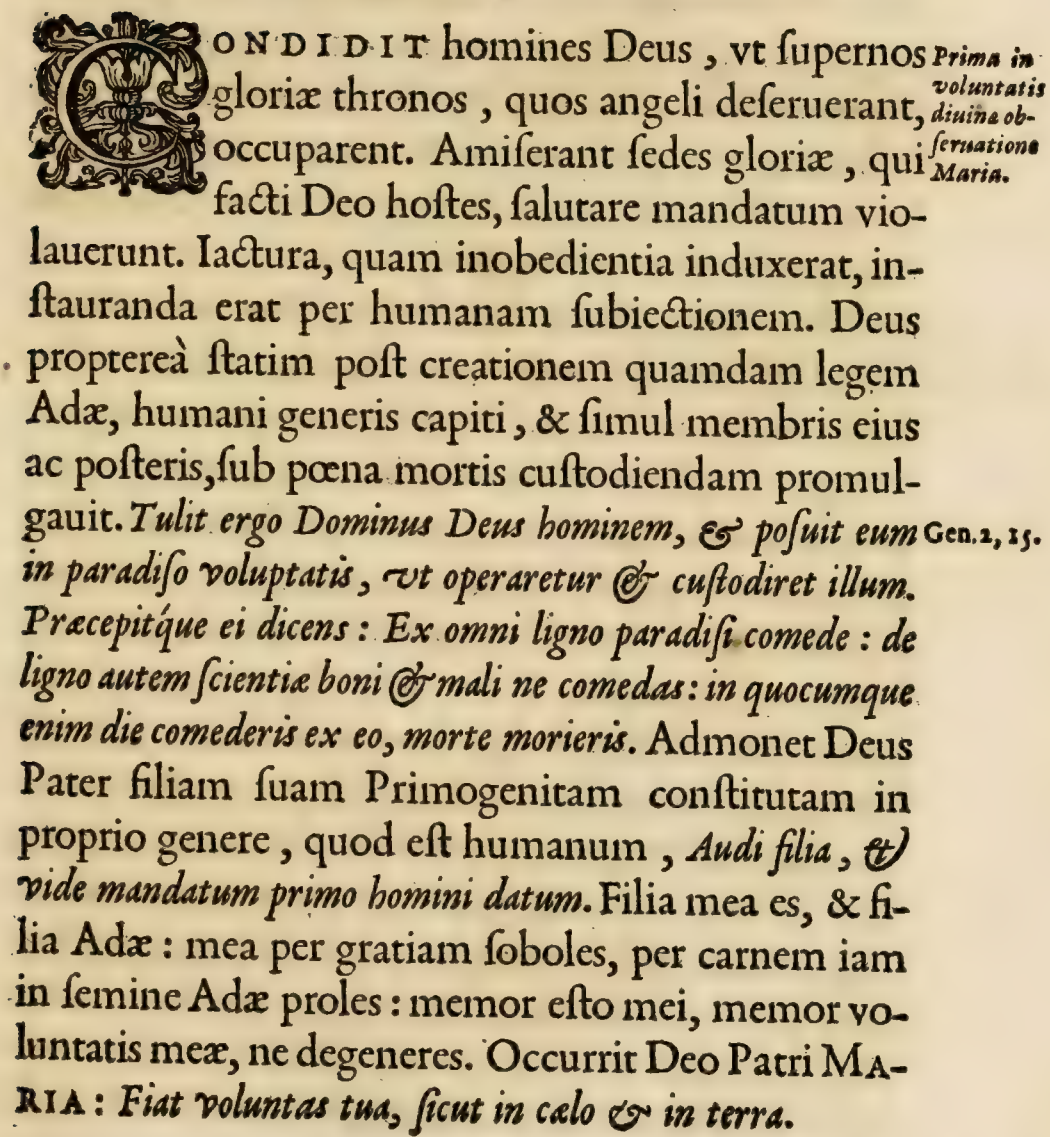 CONDIDIT homines Deus, vt ſupernos
gloriæ thronos, quos angeli deſeruerant,
occuparent. Amiſerant ſedes gloriæ, qui
facti Deo hoſtes, ſalutare mandatum vio-
lauerunt. Iactura, quam inobedientia induxerat, in-
ſtauranda erat per humanam ſubiectionem. Deus
proptereà ſtatim poſt creationem quamdam legem
Adæ, humani generis capiti, & ſimul membris eius
ac poſteris, ſub pœna mortis cuſtodiendam promul-
gauit. Tulit ergo Dominus Deus hominem, & poſuit eum
in paradiſo voluptatis, vt operaretur & cuſtodiret illum.
Præcepitq́ue ei dicens: Ex omni ligno paradiſi comede: de
ligno autem ſcientiæ boni & mali ne comedas: in quocumque
enim die comederis ex eo, morte morieris. Admonet Deus
Pater filiam ſuam Primogenitam conſtitutam in
proprio genere, quod eſt humanum, Audi filia, &
vide mandatum primo homini datum. Filia mea es, & fi-
lia Adæ: mea per gratiam ſoboles, per carnem iam
in ſemine Adæ proles: memor eſto mei, memor vo-
luntatis meæ, ne degeneres. Occurrit Deo Patri MA-
RIA: Fiat voluntas tua, ſicut in cælo & in terra.
Prima in
voluntatis
diuinæ ob-
ſeruatione
Maria.
Gen. 2, 15.